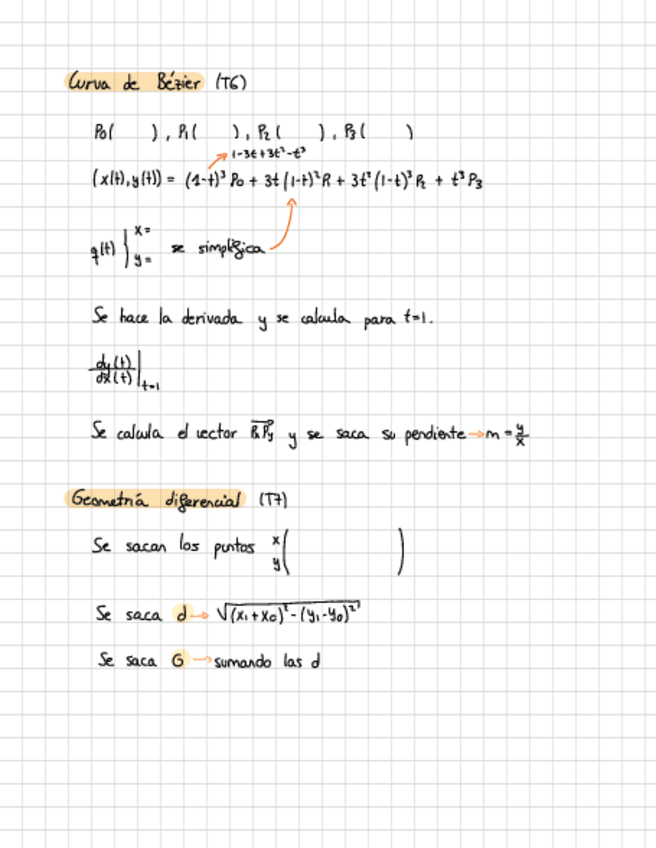 Curva de Bézier (T6)
P0( ), P1( ), P2( ), P3( )
1-3t+3t²-t³
(x(t),y(t)) = (1-t)³ P0 + 3t(1-t)² P1 + 3t²(1-t)³ P2 + t³ P3
q(t) | x=
y= se simplifica
Se hace la derivada y se calcula para t=1.
dy(t)
dx(t) | t=1
Se calcula el vector y se saca su pendiente → m = y/x
Geometría diferencial (T7)
Se sacan los puntos x
y ( )
Se saca d → √(x₁+x₀)²-(y₁-y₀)²
Se saca G → sumando las d